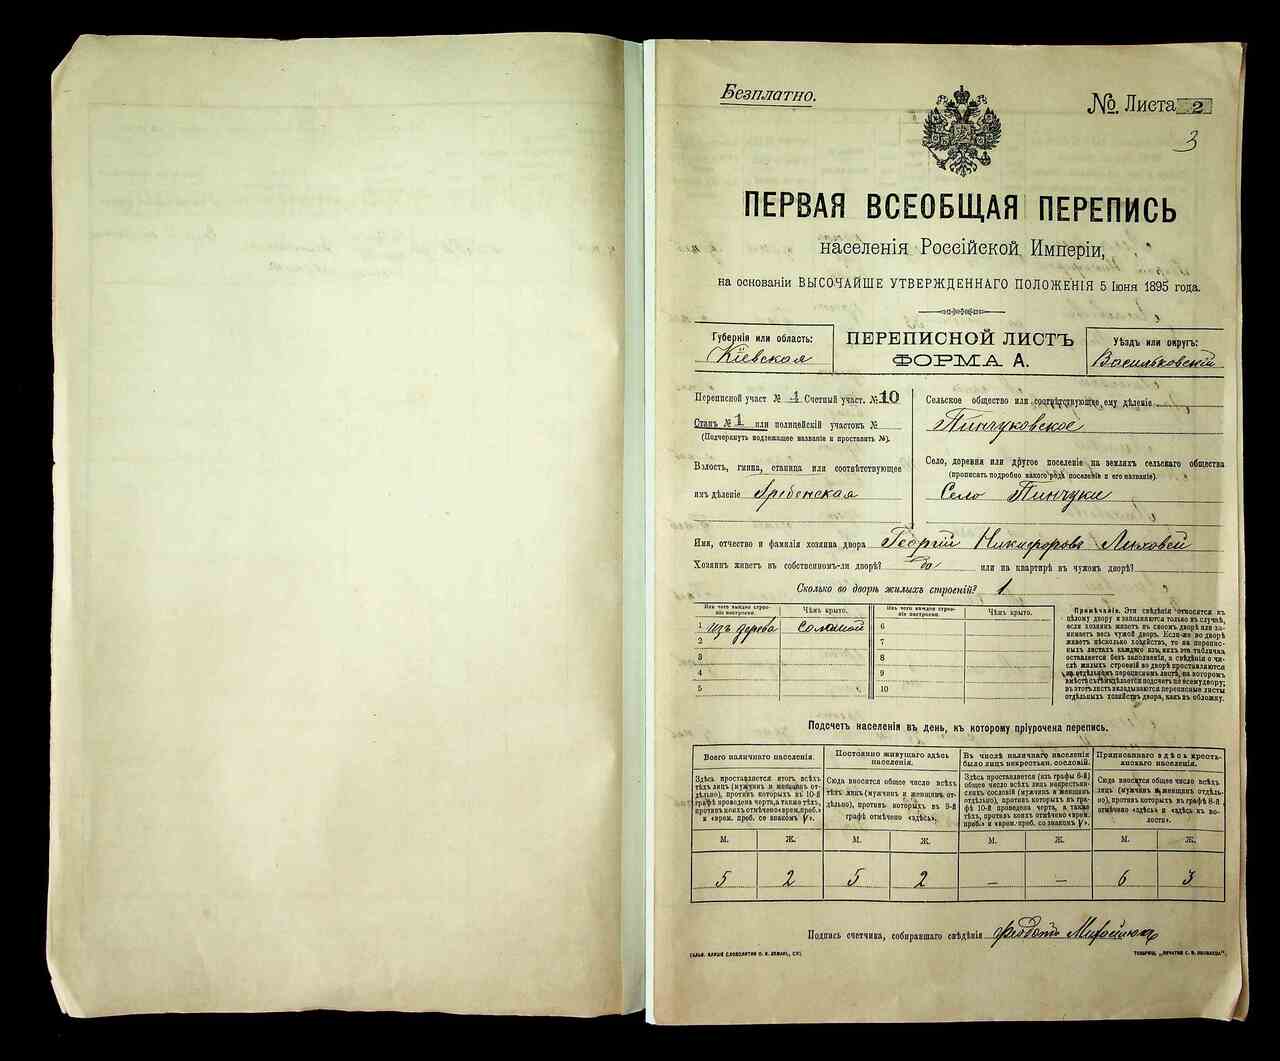 Безплатно.
№. Листа 2
3
ПЕРВАЯ ВСЕОБЩАЯ ПЕРЕПИСЬ
населенія Россійской Имперіи,
на основаніи ВЫСОЧАЙШЕ УТВЕРЖДЕННАГО ПОЛОЖЕНІЯ 5 Іюня 1895 года.
Губернія или область:
Кіевская
ПЕРЕПИСНОЙ ЛИСТЪ
ФОРМА А.
Уѣздъ или округъ:
Васильковскій
Переписной участ № 4 Счетный участ. № 10
Станъ № 1 или полицейскій участокъ №
(Подчеркнуть подлежащее названіе и проставить №).
Волость, гмина, станица или соотвѣтствующее
имъ дѣленіе Гребенская
Сельское общество или соотвѣтствующее ему дѣленіе
Пинчуковское
Село, деревня или другое поселеніе на земляхъ сельскаго общества
(прописать подробно какого рода поселеніе и его названіе).
Село Пинчуки
Имя, отчество и фамилія хозяина двора Георгій Никифоровъ Лиховей
Хозяинъ живетъ въ собственномъ-ли дворѣ? да или на квартирѣ въ чужомъ дворѣ?
Сколько во дворѣ жилыхъ строеній? 1
Изъ чего каждое строеніе построено.
Чѣмъ крыто.
Изъ чего каждое строеніе построено.
Чѣмъ крыто.
1 изъ дерева соломой 6
2 7
3 8
4 9
5 10
Примѣчаніе. Эти свѣдѣнія относятся къ
цѣлому двору и заполняются только въ случаѣ,
если хозяинъ живетъ въ своемъ дворѣ или занимаетъ
весь чужой дворъ. Если-же во дворѣ
живетъ нѣсколько хозяйствъ, то на переписныхъ
листахъ каждаго изъ нихъ эта табличка
оставляется безъ заполненія, а свѣдѣнія о числѣ
жилыхъ строеній во дворѣ проставляются
на отдѣльномъ переписномъ листѣ, на которомъ
вмѣстѣ съ тѣмъ дѣлается подсчетъ по всему двору;
въ этотъ листъ вкладываются переписные листы
отдѣльныхъ хозяйствъ двора, какъ въ обложку.
Подсчетъ населенія въ день, къ которому пріурочена перепись.
Всего наличнаго населенія.
Постоянно живущаго здѣсь
населенія.
Въ числѣ наличнаго населенія
было лицъ некрестьян. сословій.
Приписаннаго здѣсь крестьянскаго
населенія.
Здѣсь проставляется итогъ всѣхъ
тѣхъ лицъ (мужчинъ и женщинъ отдѣльно),
противъ которыхъ въ 10-й
графѣ проведена черта, а также тѣхъ,
противъ коихъ отмѣчено «врем. преб.»
и «врем. преб. со знакомъ V».
Сюда вносится общее число всѣхъ
тѣхъ лицъ (мужчинъ и женщинъ отдѣльно),
противъ которыхъ въ 9-й
графѣ отмѣчено «здѣсь».
Здѣсь проставляется (изъ графы 6-й)
общее число всѣхъ лицъ некрестьянскихъ
сословій (мужчинъ и женщинъ
отдѣльно), противъ которыхъ въ графѣ
10-й проведена черта, а также
тѣхъ, противъ коихъ отмѣчено «врем.
преб.» и «врем. преб. со знакомъ V».
Сюда вносится общее число всѣхъ
лицъ (мужчинъ и женщинъ отдѣльно),
противъ которыхъ въ графѣ 8-й
отмѣчено «здѣсь» и «здѣсь къ волости».
М. Ж. М. Ж. М. Ж. М. Ж.
5 2 5 2 – – 6 3
Подпись счетчика, собиравшаго свѣдѣнія Феодотъ